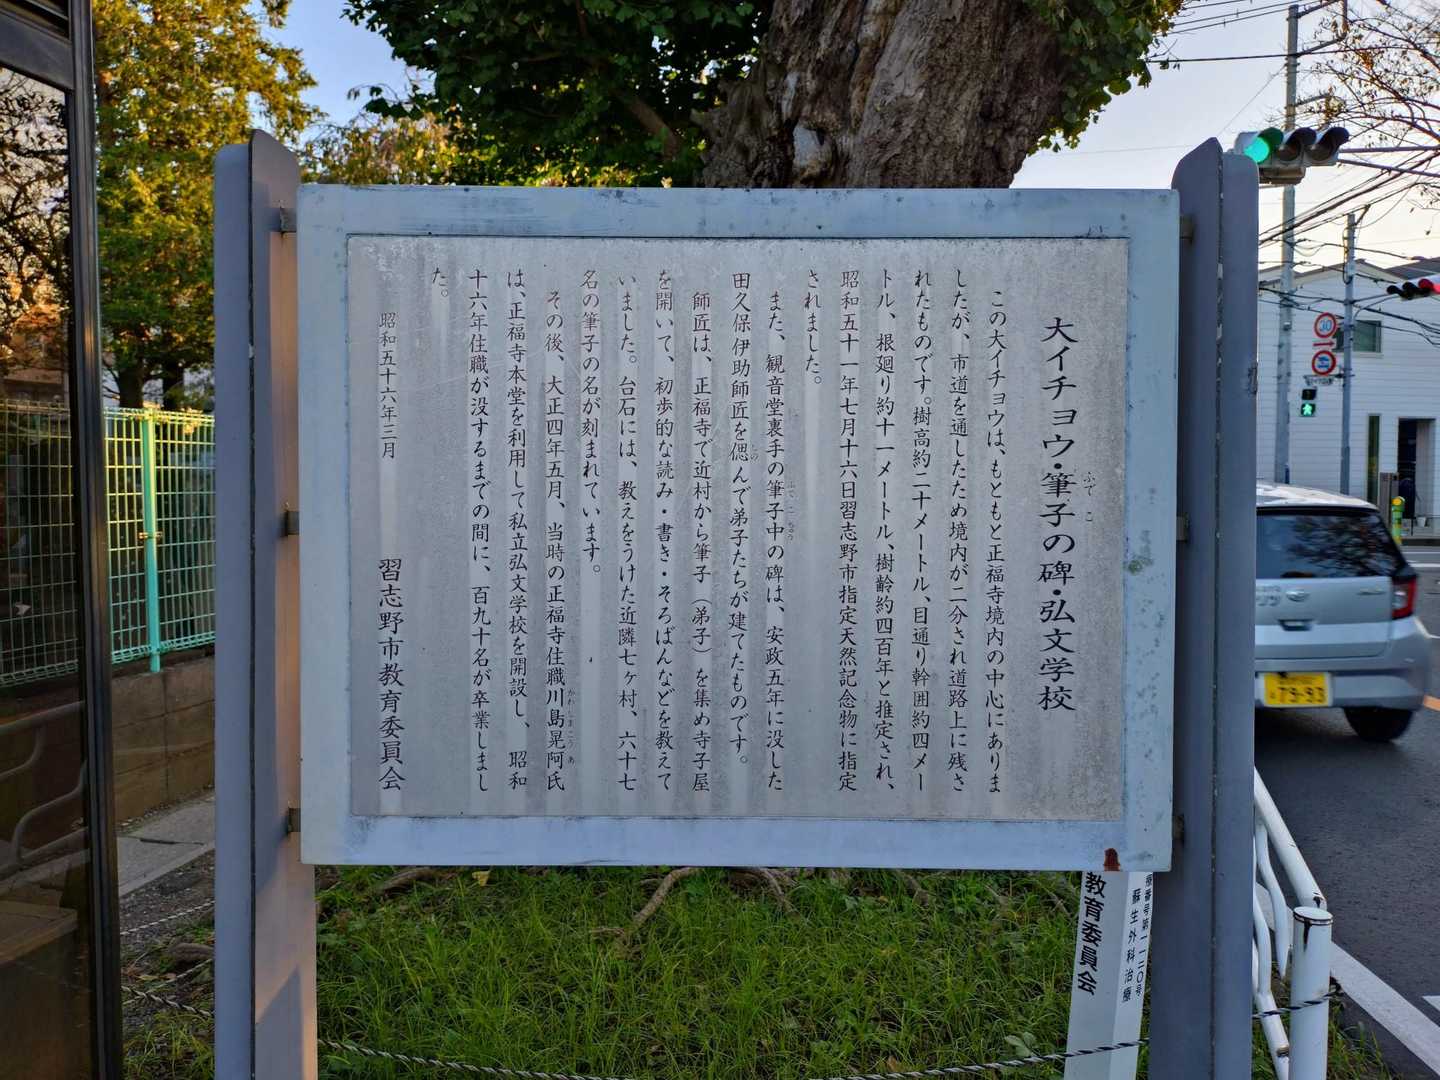 大イチョウ・筆子の碑・弘文学校
ふでこ
この大イチョウは、もともと正福寺境内の中心にありま
したが、市道を通したため境内が二分され道路上に残さ
れたものです。樹高約二十メートル、目通り幹囲約四メー
トル、根廻り約十一メートル、樹齢約四百年と推定され、
昭和五十一年七月十六日習志野市指定天然記念物に指定
されました。
また、観音堂裏手の筆子中の碑は、安政五年に没した
ふでこちゅう
田久保伊助師匠を偲んで弟子たちが建てたものです。
しの
師匠は、正福寺で近村から筆子（弟子）を集め寺子屋
を開いて、初歩的な読み・書き・そろばんなどを教えて
いました。台石には、教えをうけた近隣七ヶ村、六十七
名の筆子の名が刻まれています。
その後、大正四年五月、当時の正福寺住職川島晃阿氏
かわしまこうあ
は、正福寺本堂を利用して私立弘文学校を開設し、昭和
十六年住職が没するまでの間に、百九十名が卒業しまし
た。
昭和五十六年三月
習志野市教育委員会
教育委員会
療番号第一一二〇号
蘇生外科治療
79-93
30